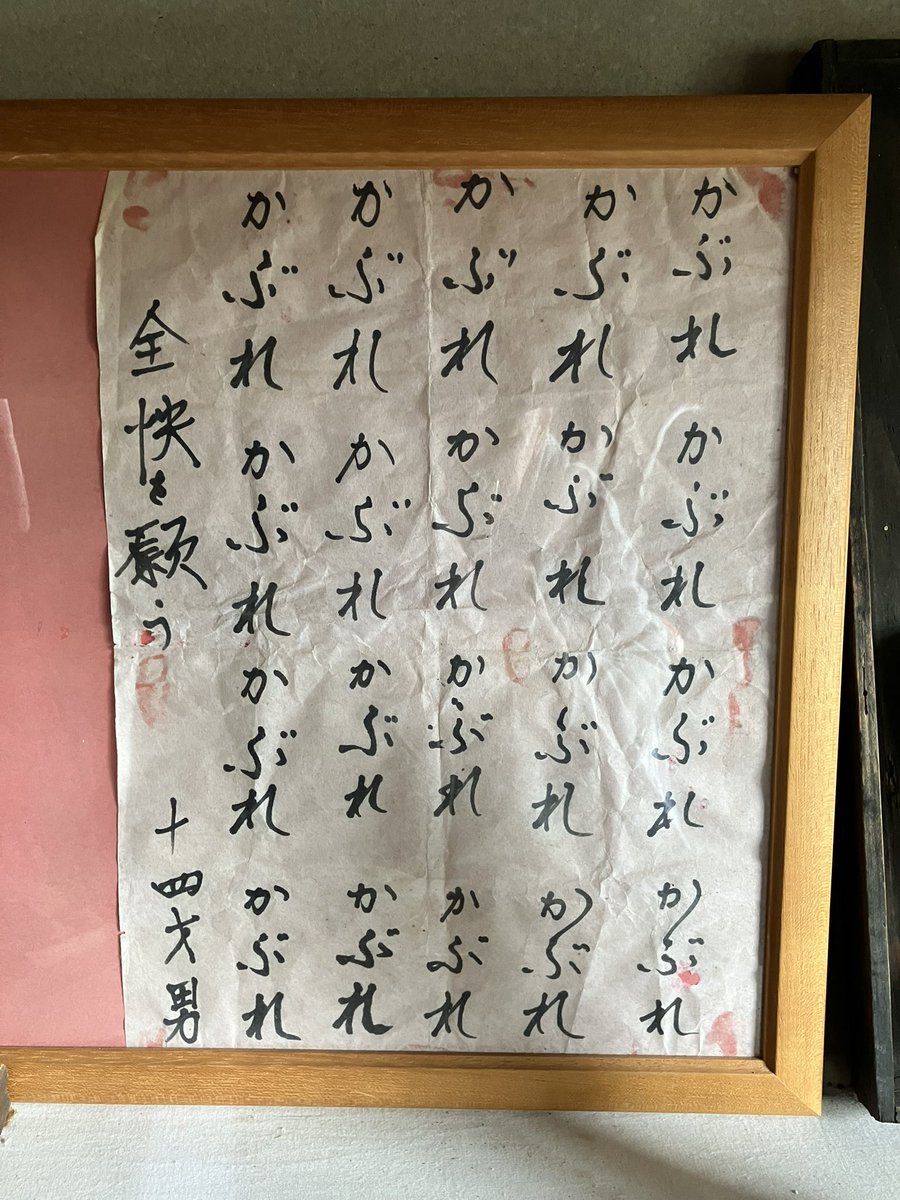 かぶれかぶれかぶれかぶれ
かぶれかぶれかぶれかぶれ
かぶれかぶれかぶれかぶれ
かぶれかぶれかぶれかぶれ
かぶれかぶれかぶれかぶれ
全快を願う 十四才男